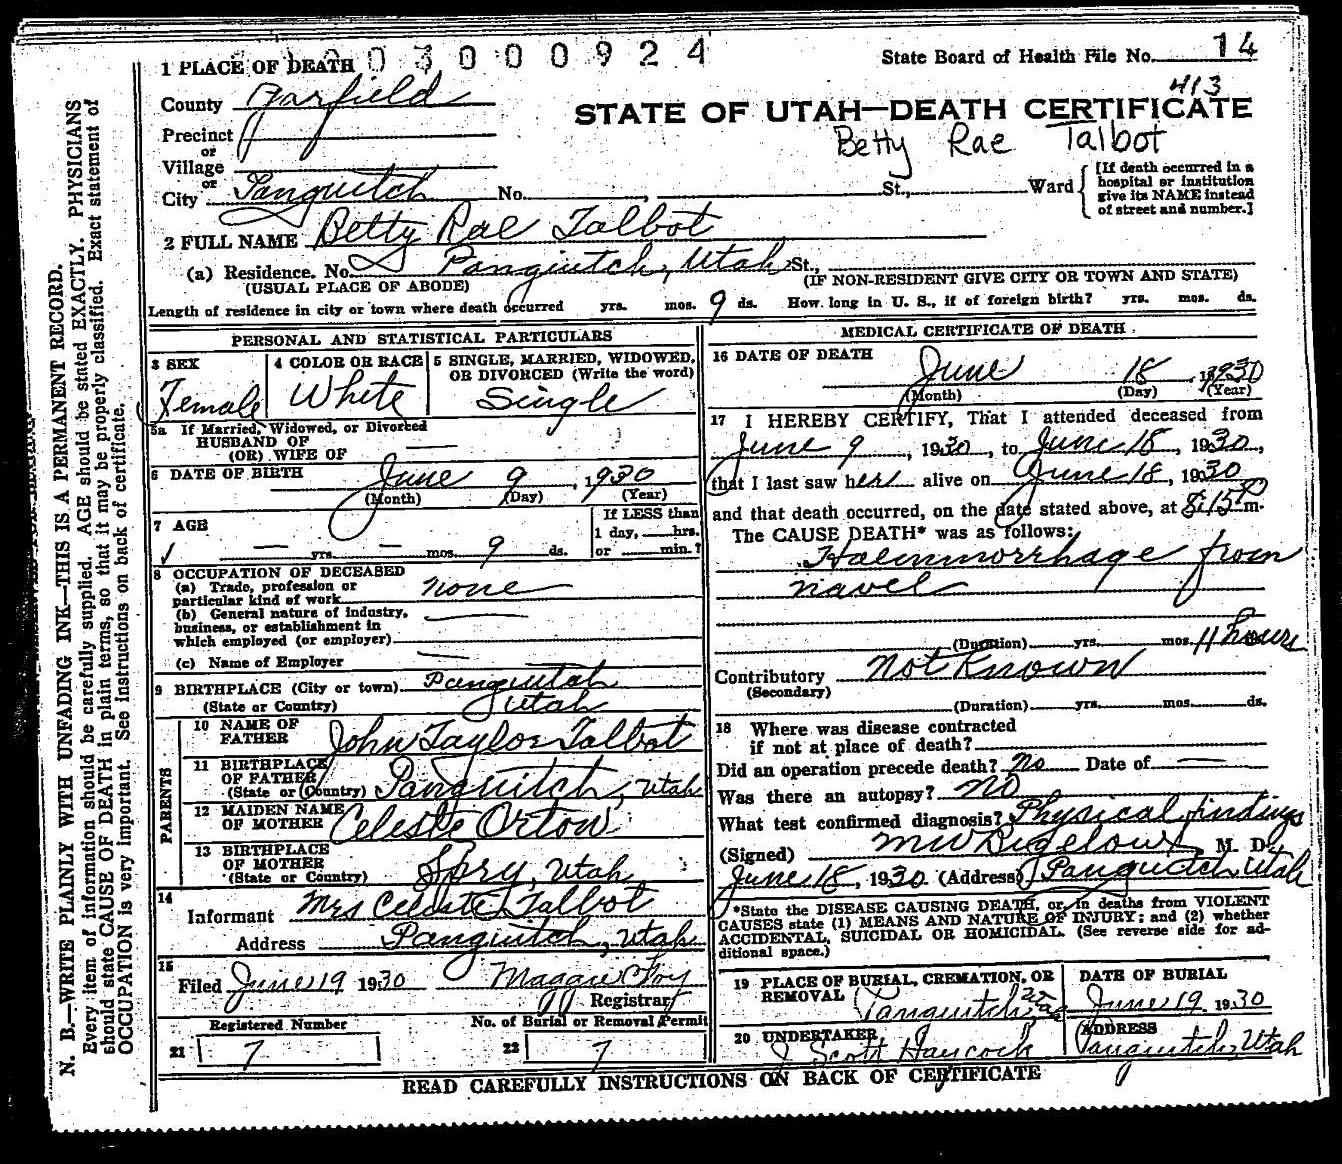 1 PLACE OF DEATH 0 3 0 0 0 9 2 4
State Board of Health File No. 14
413
County Garfield
STATE OF UTAH—DEATH CERTIFICATE
Betty Rae Talbot
Precinct
or
Village
or
City Panguitch No. St., Ward
[If death occurred in a
hospital or institution
give its NAME instead
of street and number.]
2 FULL NAME Betty Rae Talbot
(a) Residence. No. Panguitch, Utah St.,
(USUAL PLACE OF ABODE) (IF NON-RESIDENT GIVE CITY OR TOWN AND STATE)
Length of residence in city or town where death occurred yrs. mos. 9 ds. How long in U. S., if of foreign birth? yrs. mos. ds.
PERSONAL AND STATISTICAL PARTICULARS
3 SEX 4 COLOR OR RACE 5 SINGLE, MARRIED, WIDOWED,
OR DIVORCED (Write the word)
Female White Single
5a If Married, Widowed, or Divorced
HUSBAND OF
(OR) WIFE OF
6 DATE OF BIRTH June 9, 1930
(Month) (Day) (Year)
7 AGE
— yrs. — mos. 9 ds.
If LESS than
1 day, hrs.
or min.?
8 OCCUPATION OF DECEASED
(a) Trade, profession or
particular kind of work none
(b) General nature of industry,
business, or establishment in
which employed (or employer)
(c) Name of Employer
9 BIRTHPLACE (City or town) Panguitch
(State or Country) Utah
PARENTS
10 NAME OF
FATHER John Taylor Talbot
11 BIRTHPLACE
OF FATHER
(State or Country) Panguitch, Utah
12 MAIDEN NAME
OF MOTHER Celeste Orton
13 BIRTHPLACE
OF MOTHER
(State or Country) Spry, Utah
14
Informant Mrs Celeste Talbot
Address Panguitch, Utah
15
Filed June 19 1930 Maggie C Foy
Registrar
Registered Number No. of Burial or Removal Permit
21 7 22 7
MEDICAL CERTIFICATE OF DEATH
16 DATE OF DEATH
June 18, 1930
(Month) (Day) (Year)
17 I HEREBY CERTIFY, That I attended deceased from
June 9, 1930, to June 18, 1930,
that I last saw her alive on June 18, 1930
and that death occurred, on the date stated above, at 8:15 P m.
The CAUSE DEATH* was as follows:
Haemmorrhage from
navel
(Duration) yrs. mos. 11 hours
Contributory Not Known
(Secondary)
(Duration) yrs. mos. ds.
18 Where was disease contracted
if not at place of death?
Did an operation precede death? No Date of —
Was there an autopsy? NO
What test confirmed diagnosis? Physical findings
(Signed) MW Bigelow, M. D.
June 18, 1930 (Address) Panguitch, Utah
*State the DISEASE CAUSING DEATH, or, in deaths from VIOLENT
CAUSES state (1) MEANS AND NATURE OF INJURY; and (2) whether
ACCIDENTAL, SUICIDAL OR HOMICIDAL. (See reverse side for ad-
ditional space.)
19 PLACE OF BURIAL, CREMATION, OR
REMOVAL
Panguitch Utah
DATE OF BURIAL
June 19 1930
20 UNDERTAKER
J Scott Haycock
ADDRESS
Panguitch, Utah
READ CAREFULLY INSTRUCTIONS ON BACK OF CERTIFICATE
N. B.—WRITE PLAINLY WITH UNFADING INK—THIS IS A PERMANENT RECORD.
Every item of information should be carefully supplied. AGE should be stated EXACTLY. PHYSICIANS
should state CAUSE OF DEATH in plain terms, so that it may be properly classified. Exact statement of
OCCUPATION is very important. See instructions on back of certificate.